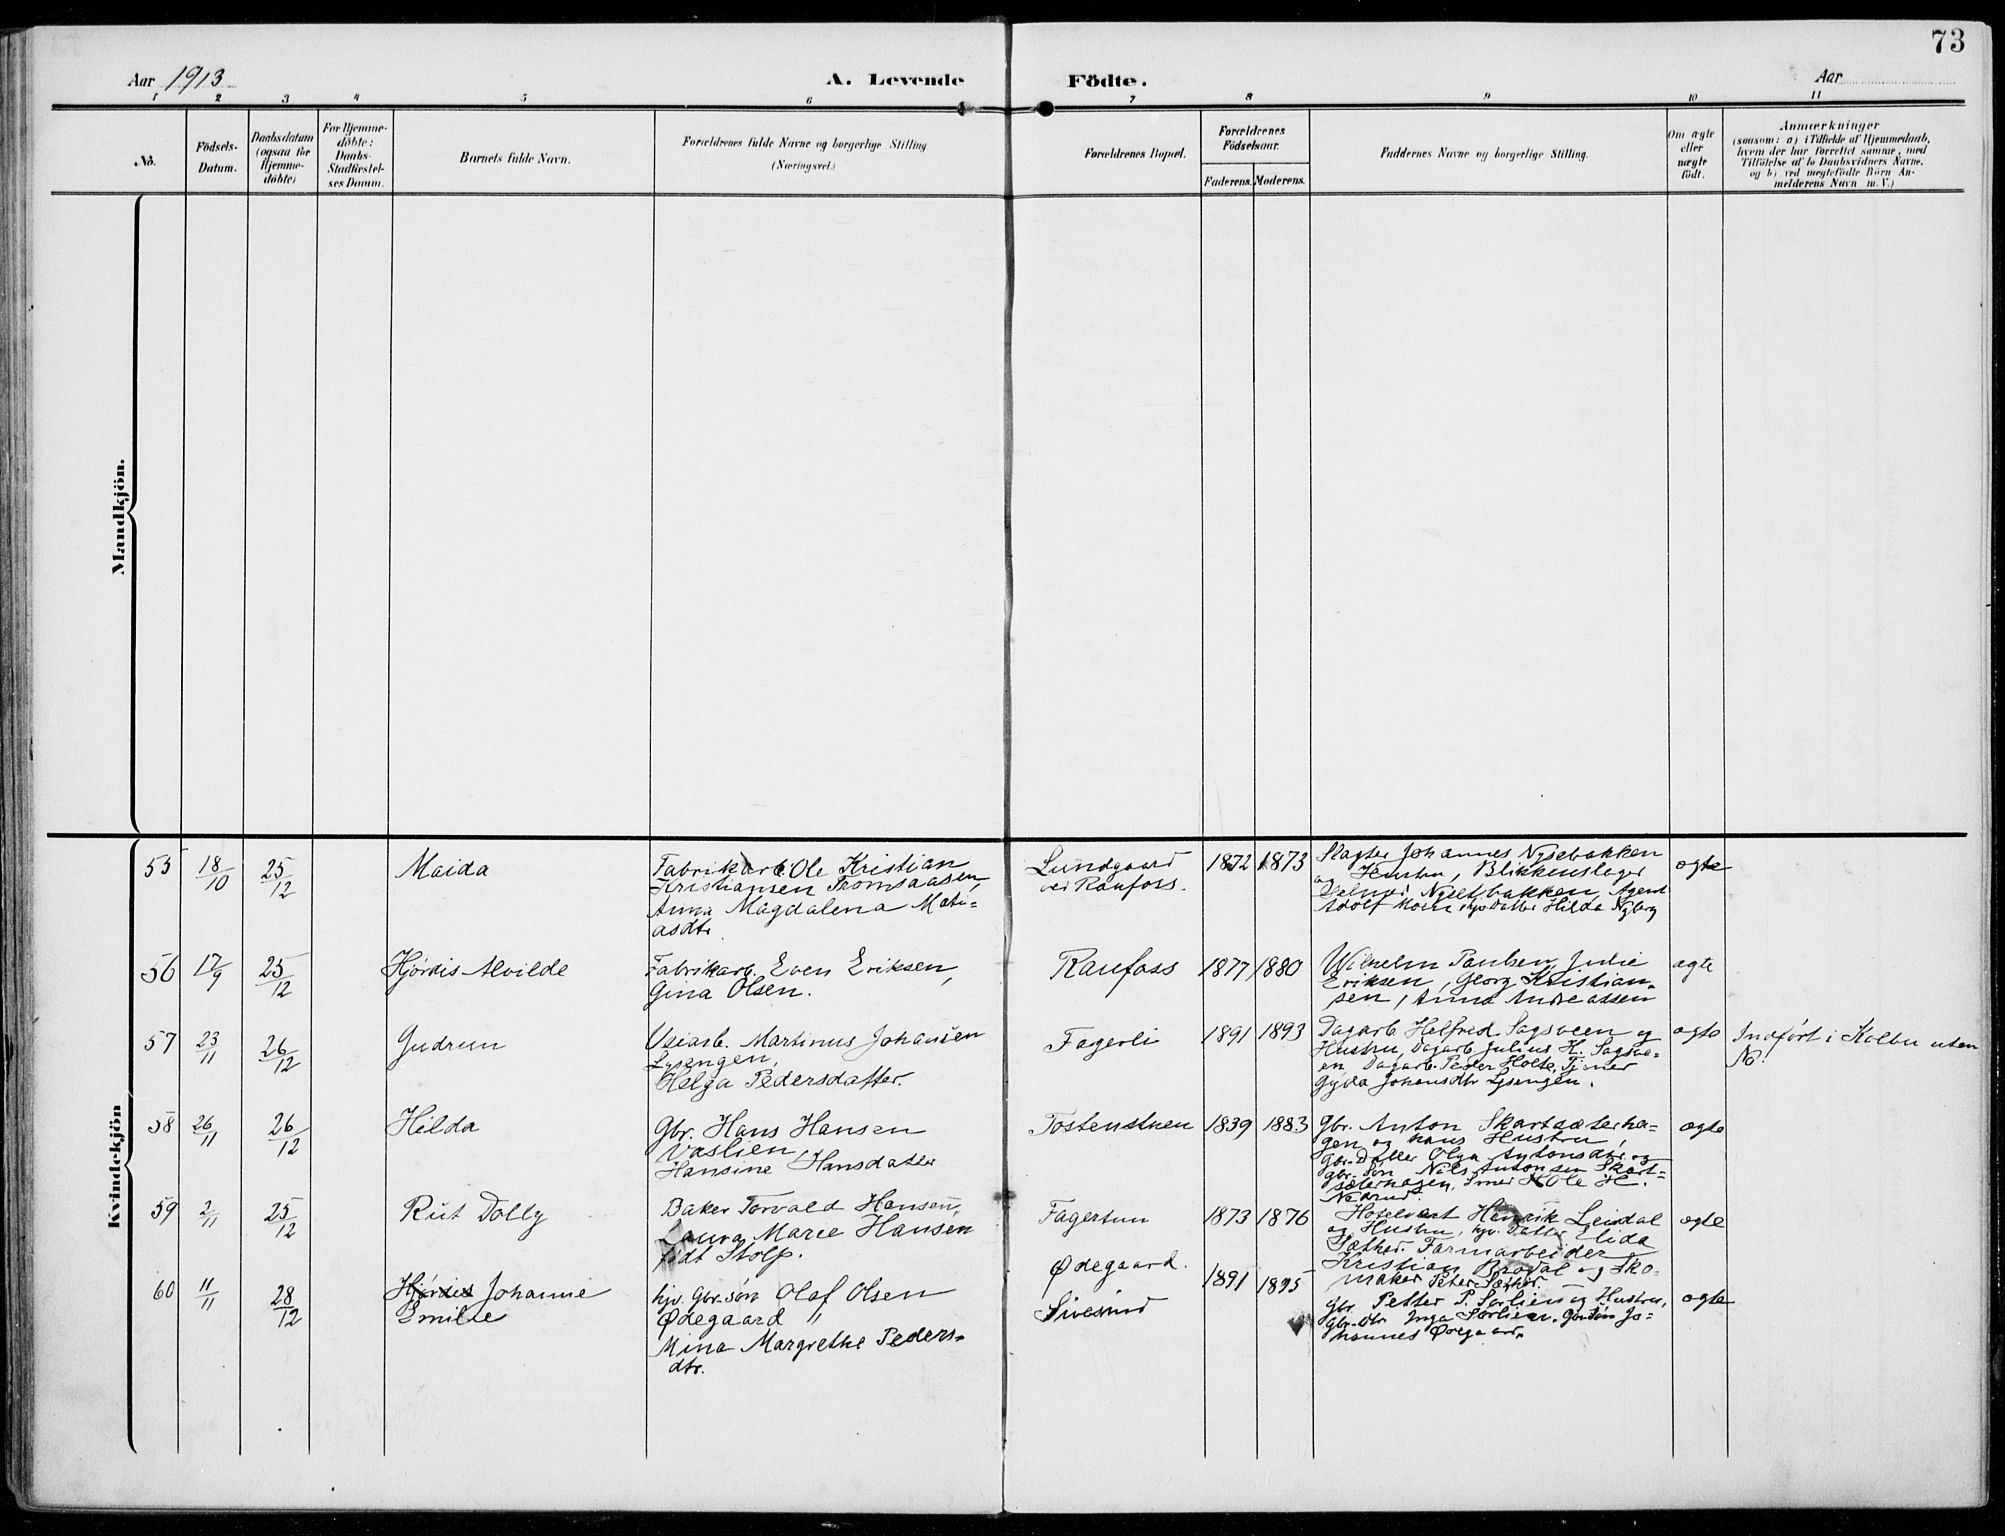 73
Aar 1913
A. Levende
Födte.
Aar
1 2 3 4 5 6 7 8 9 10 11
No.
Födsels-
Datum.
Daabsdatum
(ogsaa for
Hjemme-
döbte)
For Hjemme-
döbte:
Daabs-
Stadfæstel-
ses Datum.
Barnets fulde Navn.
Forældrenes fulde Navne og borgerlige Stilling
(Næringsvei.)
Forældrenes Bopæl.
Forældrenes
Födselsaar.
Faderens. Moderens.
Faddernes Navne og borgerlige Stilling.
Om ægte
eller
uægte
født.
Anmærkninger
(saasom: a) i Tilfælde af Hjemmedaab,
hvem der har forrettet samme, med
Tilföielse af to Daabsvidners Navne,
og b) ved uegtefödte Börn An-
melderens Navn m. V.)
Mandkjön.
Kvindekjön
55 18/10 25/12 Maida
Fabrikarb. Ole Kristian
Kristiansen Tromsaasen,
Anna Magdalena Mati-
asdtr.
Lundgaard
ved Raufoss.
1872 1873
Slagter Johannes Nysebakken
og Hustru, Blikkenslager
Nysetbakken, Agent
Adolf Hilda Nyberg
ægte
56 17/9 25/12 Hjørdis Alvilde
Fabrikarb. Even Eriksen,
Gina Olsen.
Raufoss 1877 1880
Wilhelm Paulsen, Julie
Eriksen, Georg Kristian-
sen, Anna Andreassen
ægte
57 23/11 26/12 Gudrun
Veiarb. Martinus Johansen
Lysengen,
Helga Pedersdatter.
Fagerli 1891 1893
Dagarb. Helfred Sagsveen og
Hustru, Dagarb. Julius H. Sagsve-
en, Dagarb. Peder Holte, Tjener
Gyda Johansdtr Lysengen.
ægte
Indført i Kolbu uten
No.
58 26/11 26/12 Hilda
Gbr. Hans Hansen
Vaslien,
Hansine Hansdatter
Tostenstuen 1839 1883
Gbr. Anton Skartsæterha-
gen og hans Hustru,
Gbr. Datter Olga Antonsdtr og
Gbr. Søn Nils Antonsen Skart-
sæterhagen, Ole H.
ægte
59 2/11 25/12 Rut Dolly
Baker Torvald Hansen,
Laura Marie Hansen
født Stolp.
Fagertun 1873 1876
Hotelvært Henrik Leirdal
og Hustru, hjv. Datter Elida
Sæther. Farmarbeider
Kristian Brodal og Sko-
maker Peter Sæther.
ægte
60 11/11 28/12 Hjørdis Johanne
Emilie
hjv. Gbr. søn Olaf Olsen
Ødegaard
Mina Margrethe Peders-
dtr.
Ødegaard.
Sivesind
1891 1895
Gbr. Petter P. Sørlien og Hustru,
Gbr. dtr Inga Sørlien, Gbr. Søn Jo-
hannes Ødegaard.
ægte